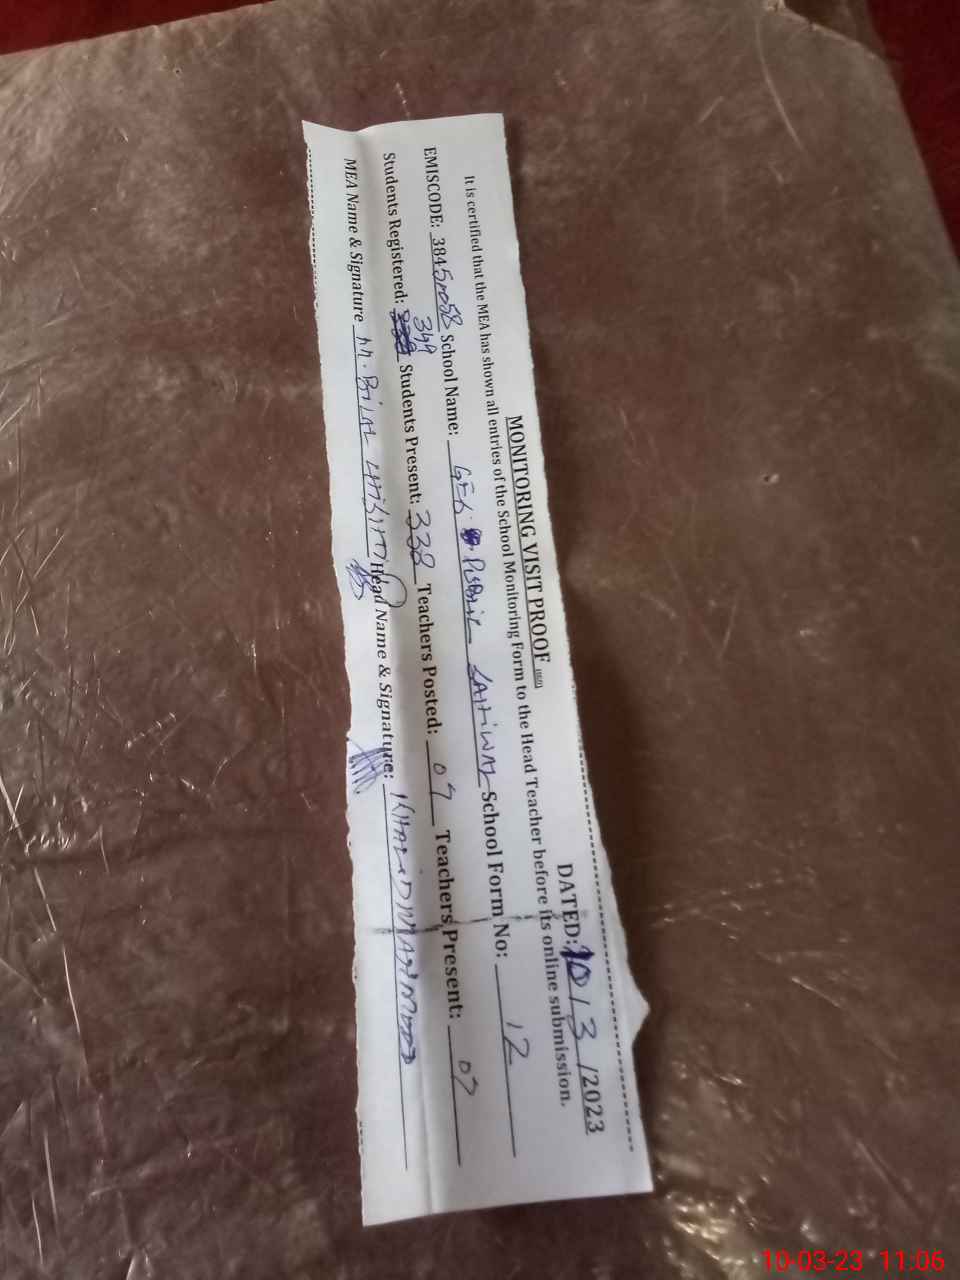 DATED: 10 / 3 /2023
MONITORING VISIT PROOF
It is certified that the MEA has shown all entries of the School Monitoring Form to the Head Teacher before its online submission.
EMISCODE: 38451058 School Name: School Form No: 12
349
Students Registered: Students Present: 338 Teachers Posted: 07 Teachers Present: 07
MEA Name & Signature M. BiLAL Head Name & Signature: KHALiD MAHMOOD
10-03-23 11:06